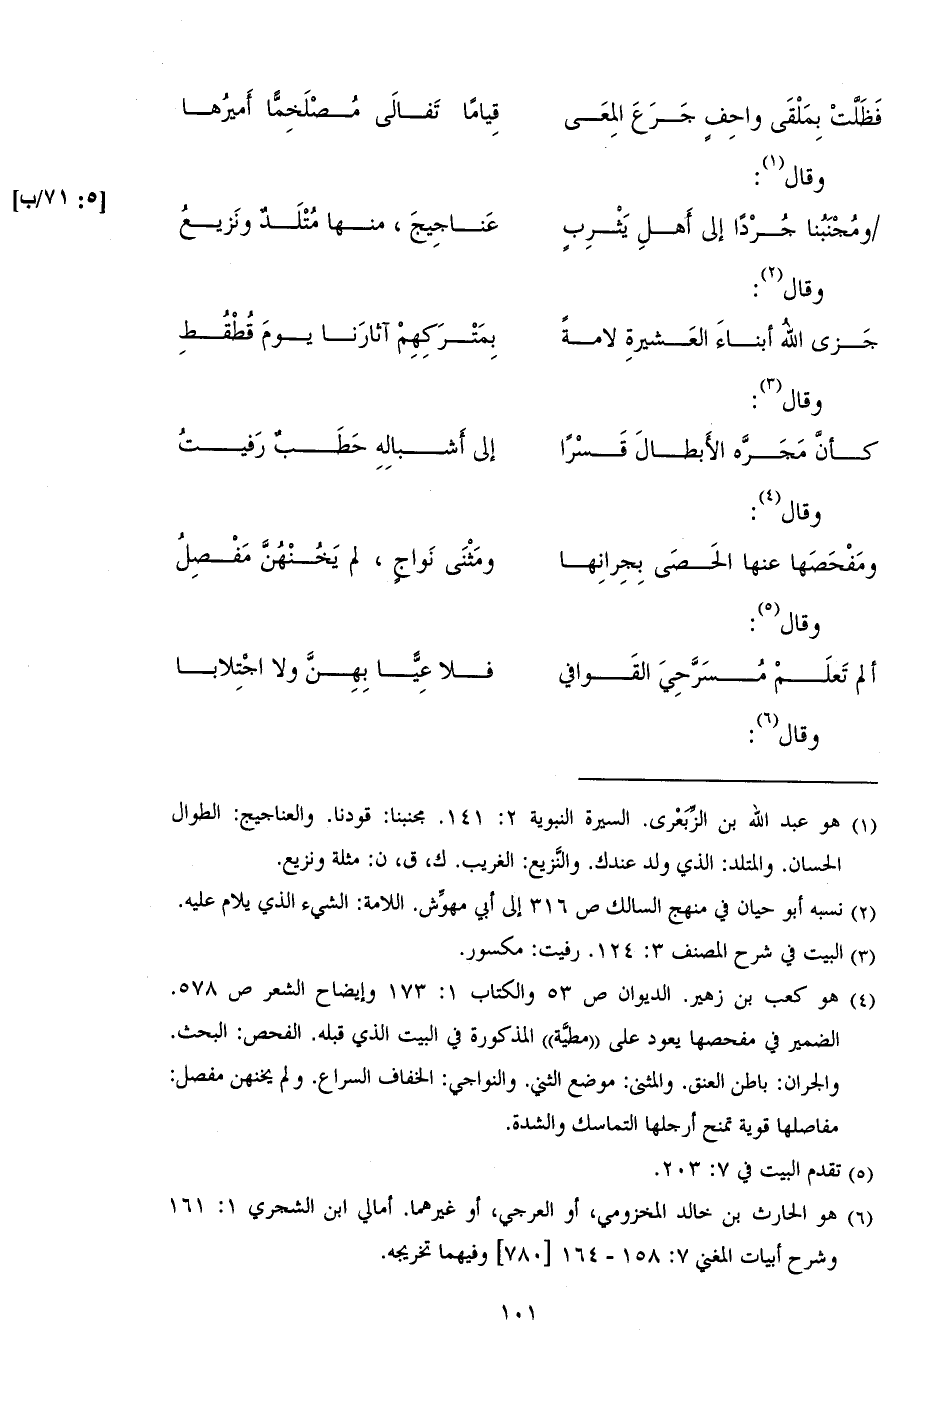 فَظَلَّتْ بِمَلْقَى واحِفٍ جَرَعَ المِعَى قِيامًا تَفالَى مُصْلَخِمًّا أَميرُها
وقال(١):
[٥: ٧١/ب]
/ومُجْنَبُنا جُرْدًا إلى أَهلِ يَثْرِبٍ عَناجِيجَ ، منها مُتْلَدٌ ونَزيعُ
وقال(٢):
جَزى اللهُ أبناءَ العَشيرةِ لامةً بِمَتْرَكِهِمْ آثارَنا يومَ قُطْقُطِ
وقال(٣):
كأنَّ مَجَرَّه الأَبطالَ قَسْرًا إلى أَشبالِهِ حَطَبٌ رَفيتُ
وقال(٤):
ومَفْحَصَها عنها الحَصَى بِجِرانِها ومَثْنَى نَواجٍ ، لم يَخُنْهُنَّ مَفْصِلُ
وقال(٥):
ألم تَعلَمْ مُسَرَّحِيَ القَوافي فلا عِيًّا بِهِنَّ ولا اجْتِلابا
وقال(٦):
(١) هو عبد الله بن الزِّبَعْرى. السيرة النبوية ٢: ١٤١. مجنبنا: قودنا. والعناجيج: الطوال
الحسان. والمتلد: الذي ولد عندك. والنَّزيع: الغريب. ك، ق، ن: مثلة ونزيع.
(٢) نسبه أبو حيان في منهج السالك ص ٣١٦ إلى أبي مهوِّش. اللامة: الشيء الذي يلام عليه.
(٣) البيت في شرح المصنف ٣: ١٢٤. رفيت: مكسور.
(٤) هو كعب بن زهير. الديوان ص ٥٣ والكتاب ١: ١٧٣ وإيضاح الشعر ص ٥٧٨.
الضمير في مفحصها يعود على ((مطيَّة)) المذكورة في البيت الذي قبله. الفحص: البحث.
والجران: باطن العنق. والمثنى: موضع الثني. والنواجي: الخفاف السراع. ولم يخنهن مفصل:
مفاصلها قوية تمنح أرجلها التماسك والشدة.
(٥) تقدم البيت في ٧: ٢٠٣.
(٦) هو الحارث بن خالد المخزومي، أو العرجي، أو غيرهما. أمالي ابن الشجري ١: ١٦١
وشرح أبيات المغني ٧: ١٥٨ - ١٦٤ [٧٨٠] وفيهما تخريجه.
١٠١